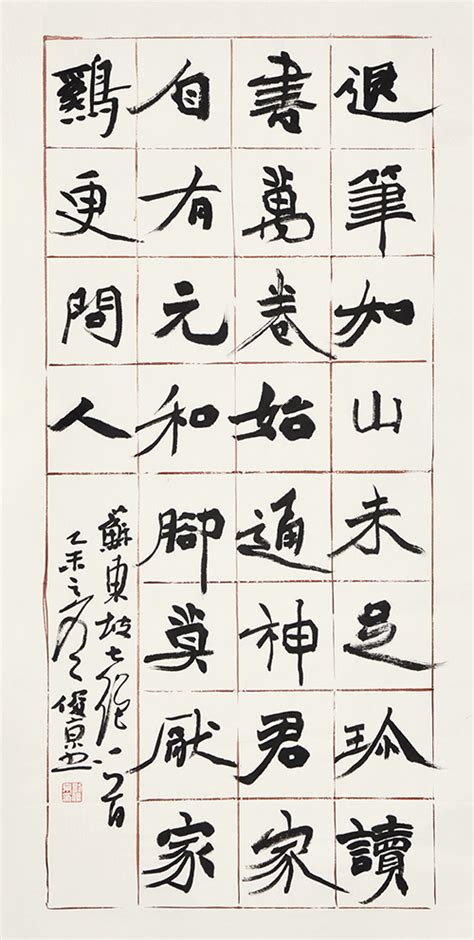 退筆如山未足珍讀
書萬卷始通神君家
自有元和腳莫厭家
鷄更問人
蘇東坡七絕一首
乙未之 俊京書